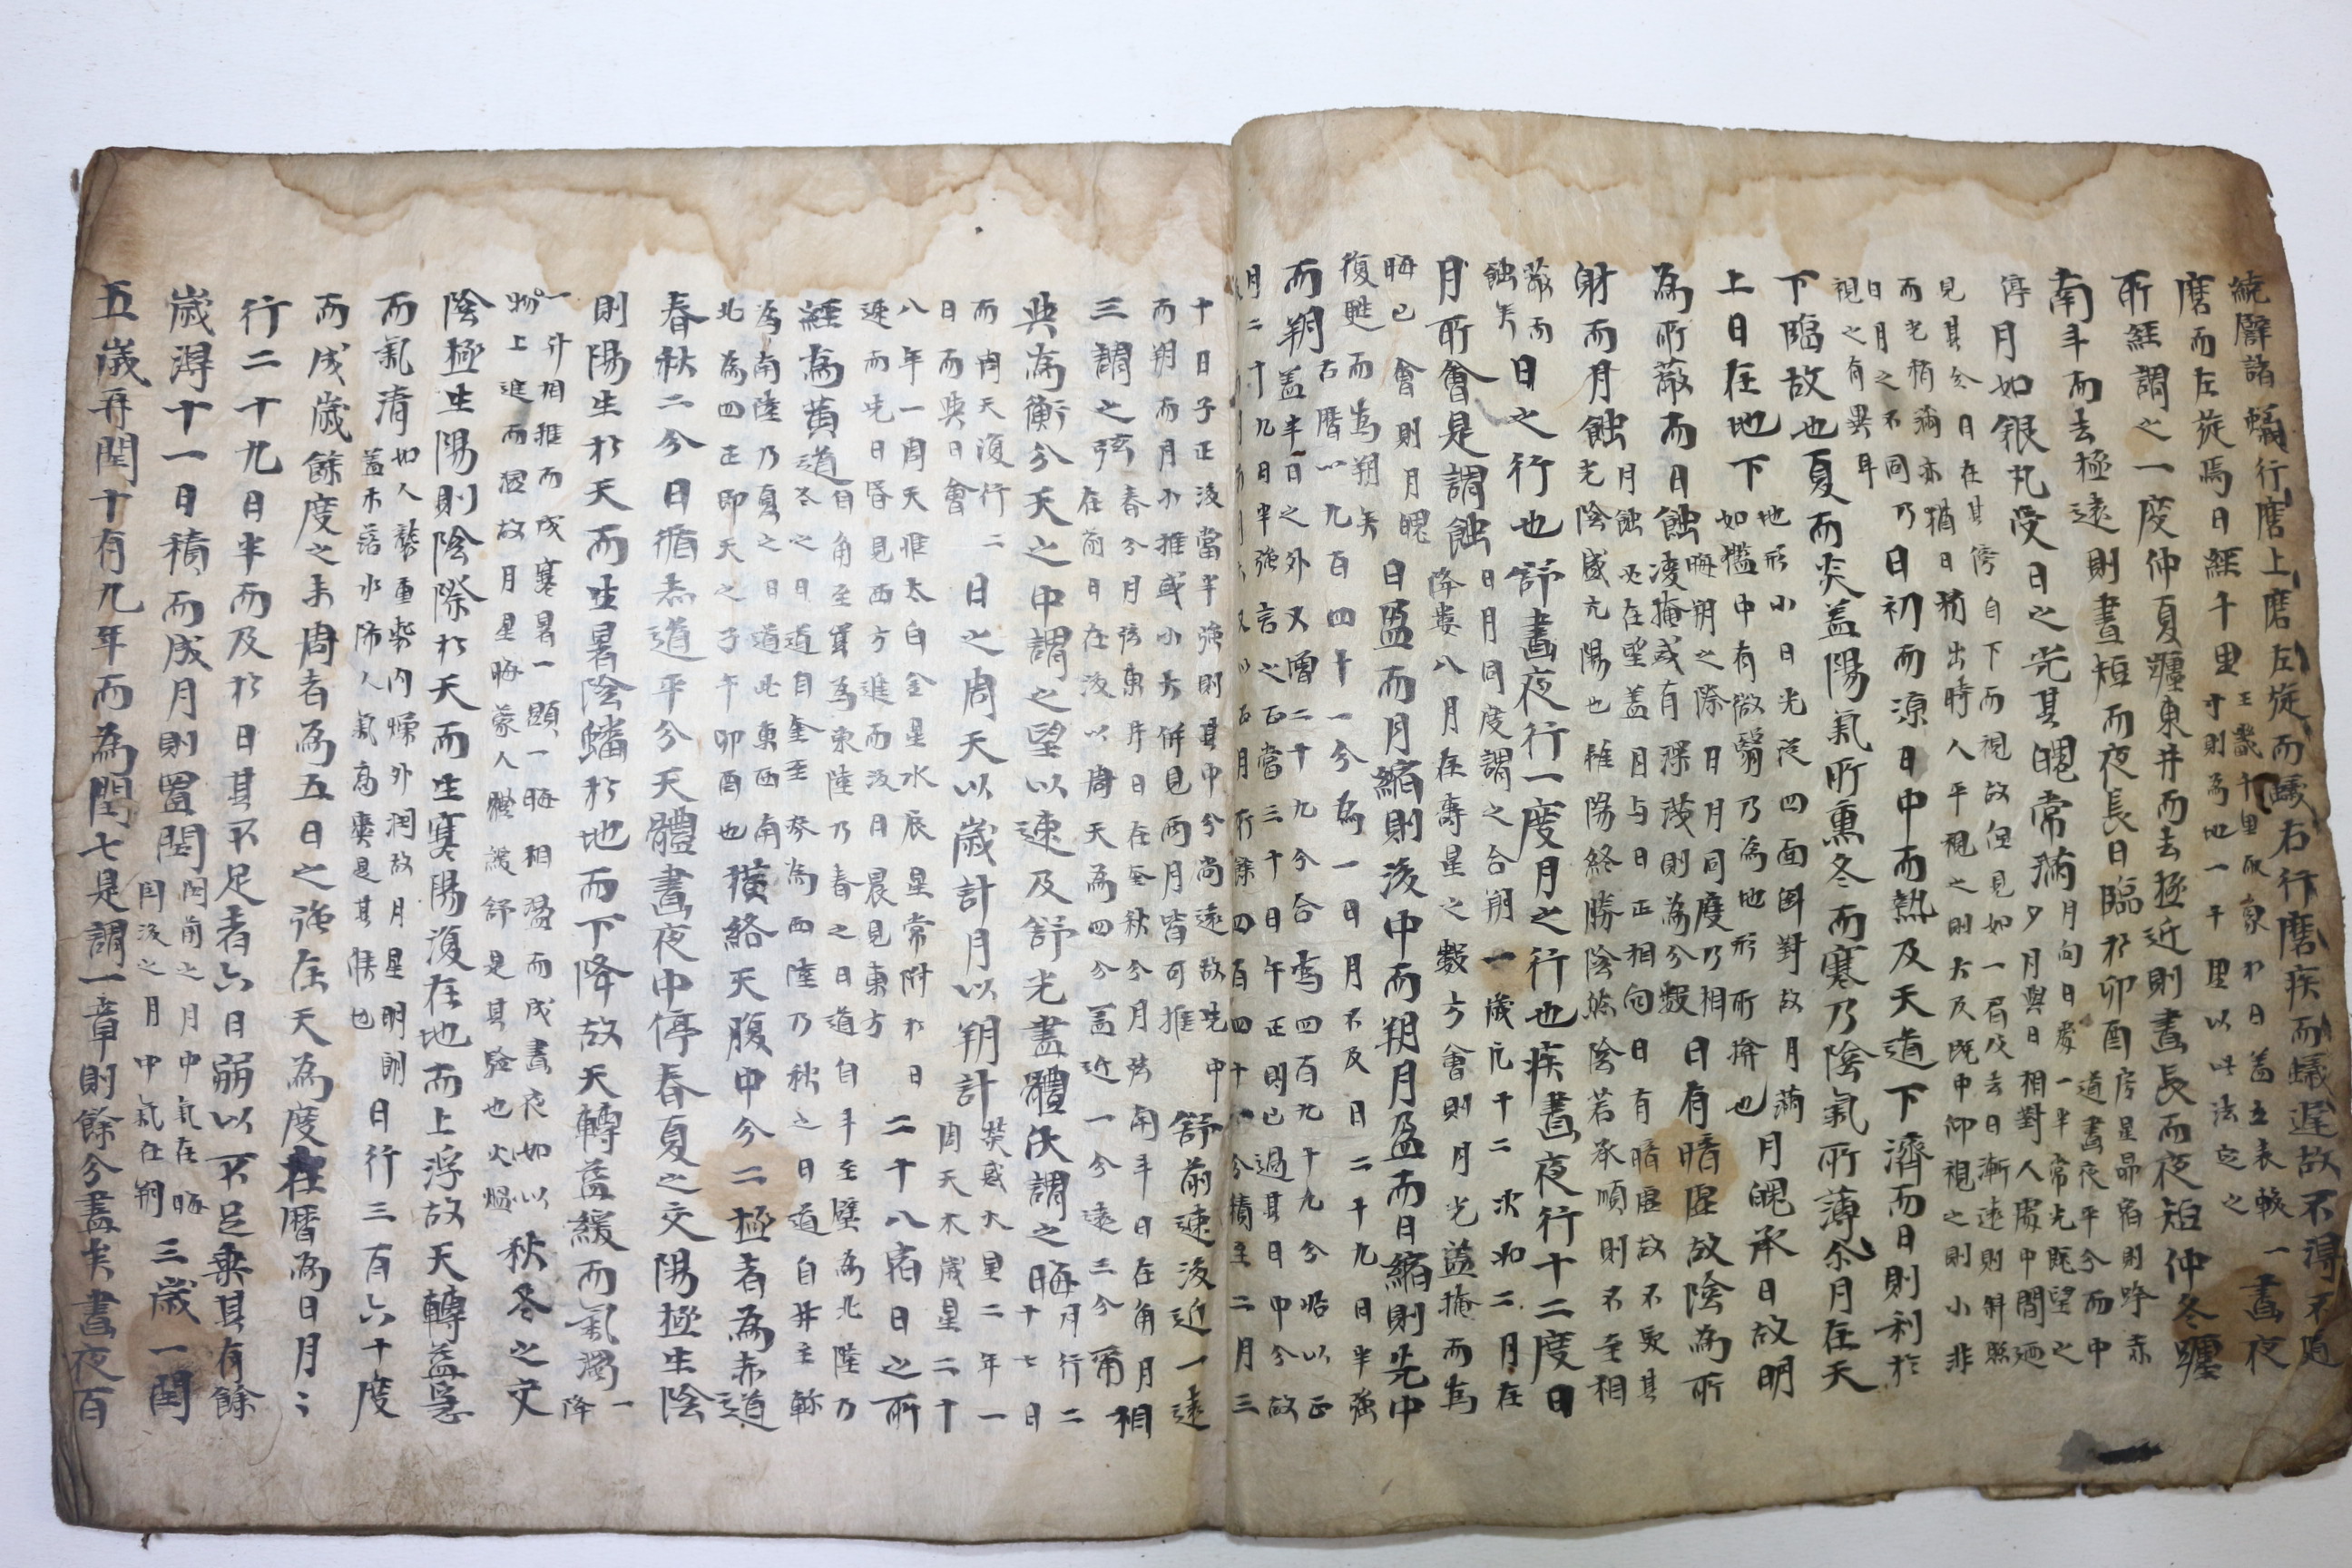 繞譬諸蟻行磨上磨左旋而蟻右行磨疾而蟻遲故不得不随
磨而左旋焉日經千里
王畿千里取象於日盖立表較
寸則為地一千里以此法定之
一晝夜
所經謂之一度仲夏躔東井而去極近則晝長而夜短仲冬躔
南斗而去極遠則晝短而夜長日臨於卯酉
房星昴宿則呼赤
道晝夜平分而中
停
月如銀丸受日之光其魄常滿
月向日處一半常光既望之
夕月與日相對人處中間迺
見其全日在其停自下而視故但見如一眉及去日漸遠則斜照
而光稍滿亦猶日稍出時人平視之則大及既中仰視之則小非
日月之不同乃
視之有異耳
日初而凉日中而熱及天道下濟而日則利於
下臨故也夏而炎盖陽氣所熏冬而寒乃陰氣所薄尒月在天
上日在地下
地形小日光從四面倒對故月滿
如檻中有微翳乃為地形所揜也
月魄承日故明
為所蔽而日蝕
晦朔之際日月同度乃相
凌掩或有深淺則為分數
日有暗虛故陰為所
射而月蝕
月蝕必在望盖月与日正相向日有暗虛故不受其
光陰盛亢陽也雖陽終勝陰然陰若承順則不至相
蔽而
蝕矣
日之行也舒晝夜行一度月之行也疾晝夜行十二度日
月所會是謂蝕
日月同度謂之合朔一歲凢十二次如二月在
降婁八月在壽星之數方會則月光盡掩而為
晦已會則月魄
復甦而為朔矣
日盈而月縮則後中而朔月盈而日縮則先中
而朔
古曆以九百四十一分為一日月不及日二十九日半強
盖半日之外又增二十九分合為四百九十九分恰以正
月二十九日半強言之正當三十日午正則已過其日中分故
月有餘四百四十分積至二月三
十日子正後當半強則其中分尚遠故先中
而朔而月小推或小大併見兩月皆可推
舒前速後近一遠
三謂之弦
春分月弦東井日在奎秋分月弦南斗日在角月相
在前日在後以周天為四分盖近一分遠三分爾
相
與為衡分天之中謂之望以速及舒光盡體伏謂之晦
月行二
十七日
而周天復行二
日而與日會
日之周天以歲計月以朔計
熒惑火星二年一
周天木歲星二十
八年一周天惟太白金星水辰星常附於日
遲而先日昏見西方進而後日晨見東方
二十八宿日之所
經為黄道
日角至箕為東陸乃春之日道自斗至壁為北陸乃
冬之日道自奎至參為西陸乃秋之日道自井至軫
為南陸乃夏之日道此東西南
北為四正即天之子午卯酉也
橫絡天腹中分二極者為赤道
春秋二分日循赤道平分天體晝夜中停春夏之交陽極生陰
則陽生於天而生暑陰蟠於地而下降故天轉益緩而氣濁
一降
一升相推而成寒暑一顯一晦相盪而成晝夜如以
物上進而溫故月星晦蒙人體被舒是其驗也火煴
秋冬之交
陰極生陽則陰際於天而生寒陽復在地而上浮故天轉益急
而氣清
如人襲重裘內燥外潤故月星明朗
盖木落水沸人氣高爽是其候也
日行三百六十度
而成歲餘度之未周者為五日之強在天為度在曆為日月〻
行二十九日半而及於日其不足者六日弱以不足乘其有餘
歲得十一日積而成月則置閏
閏前之月中氣在晦
閏後之月中氣在朔
三歲一閏
五歲再閏十有九年而為閏七是謂一章則餘分盡矣晝夜百